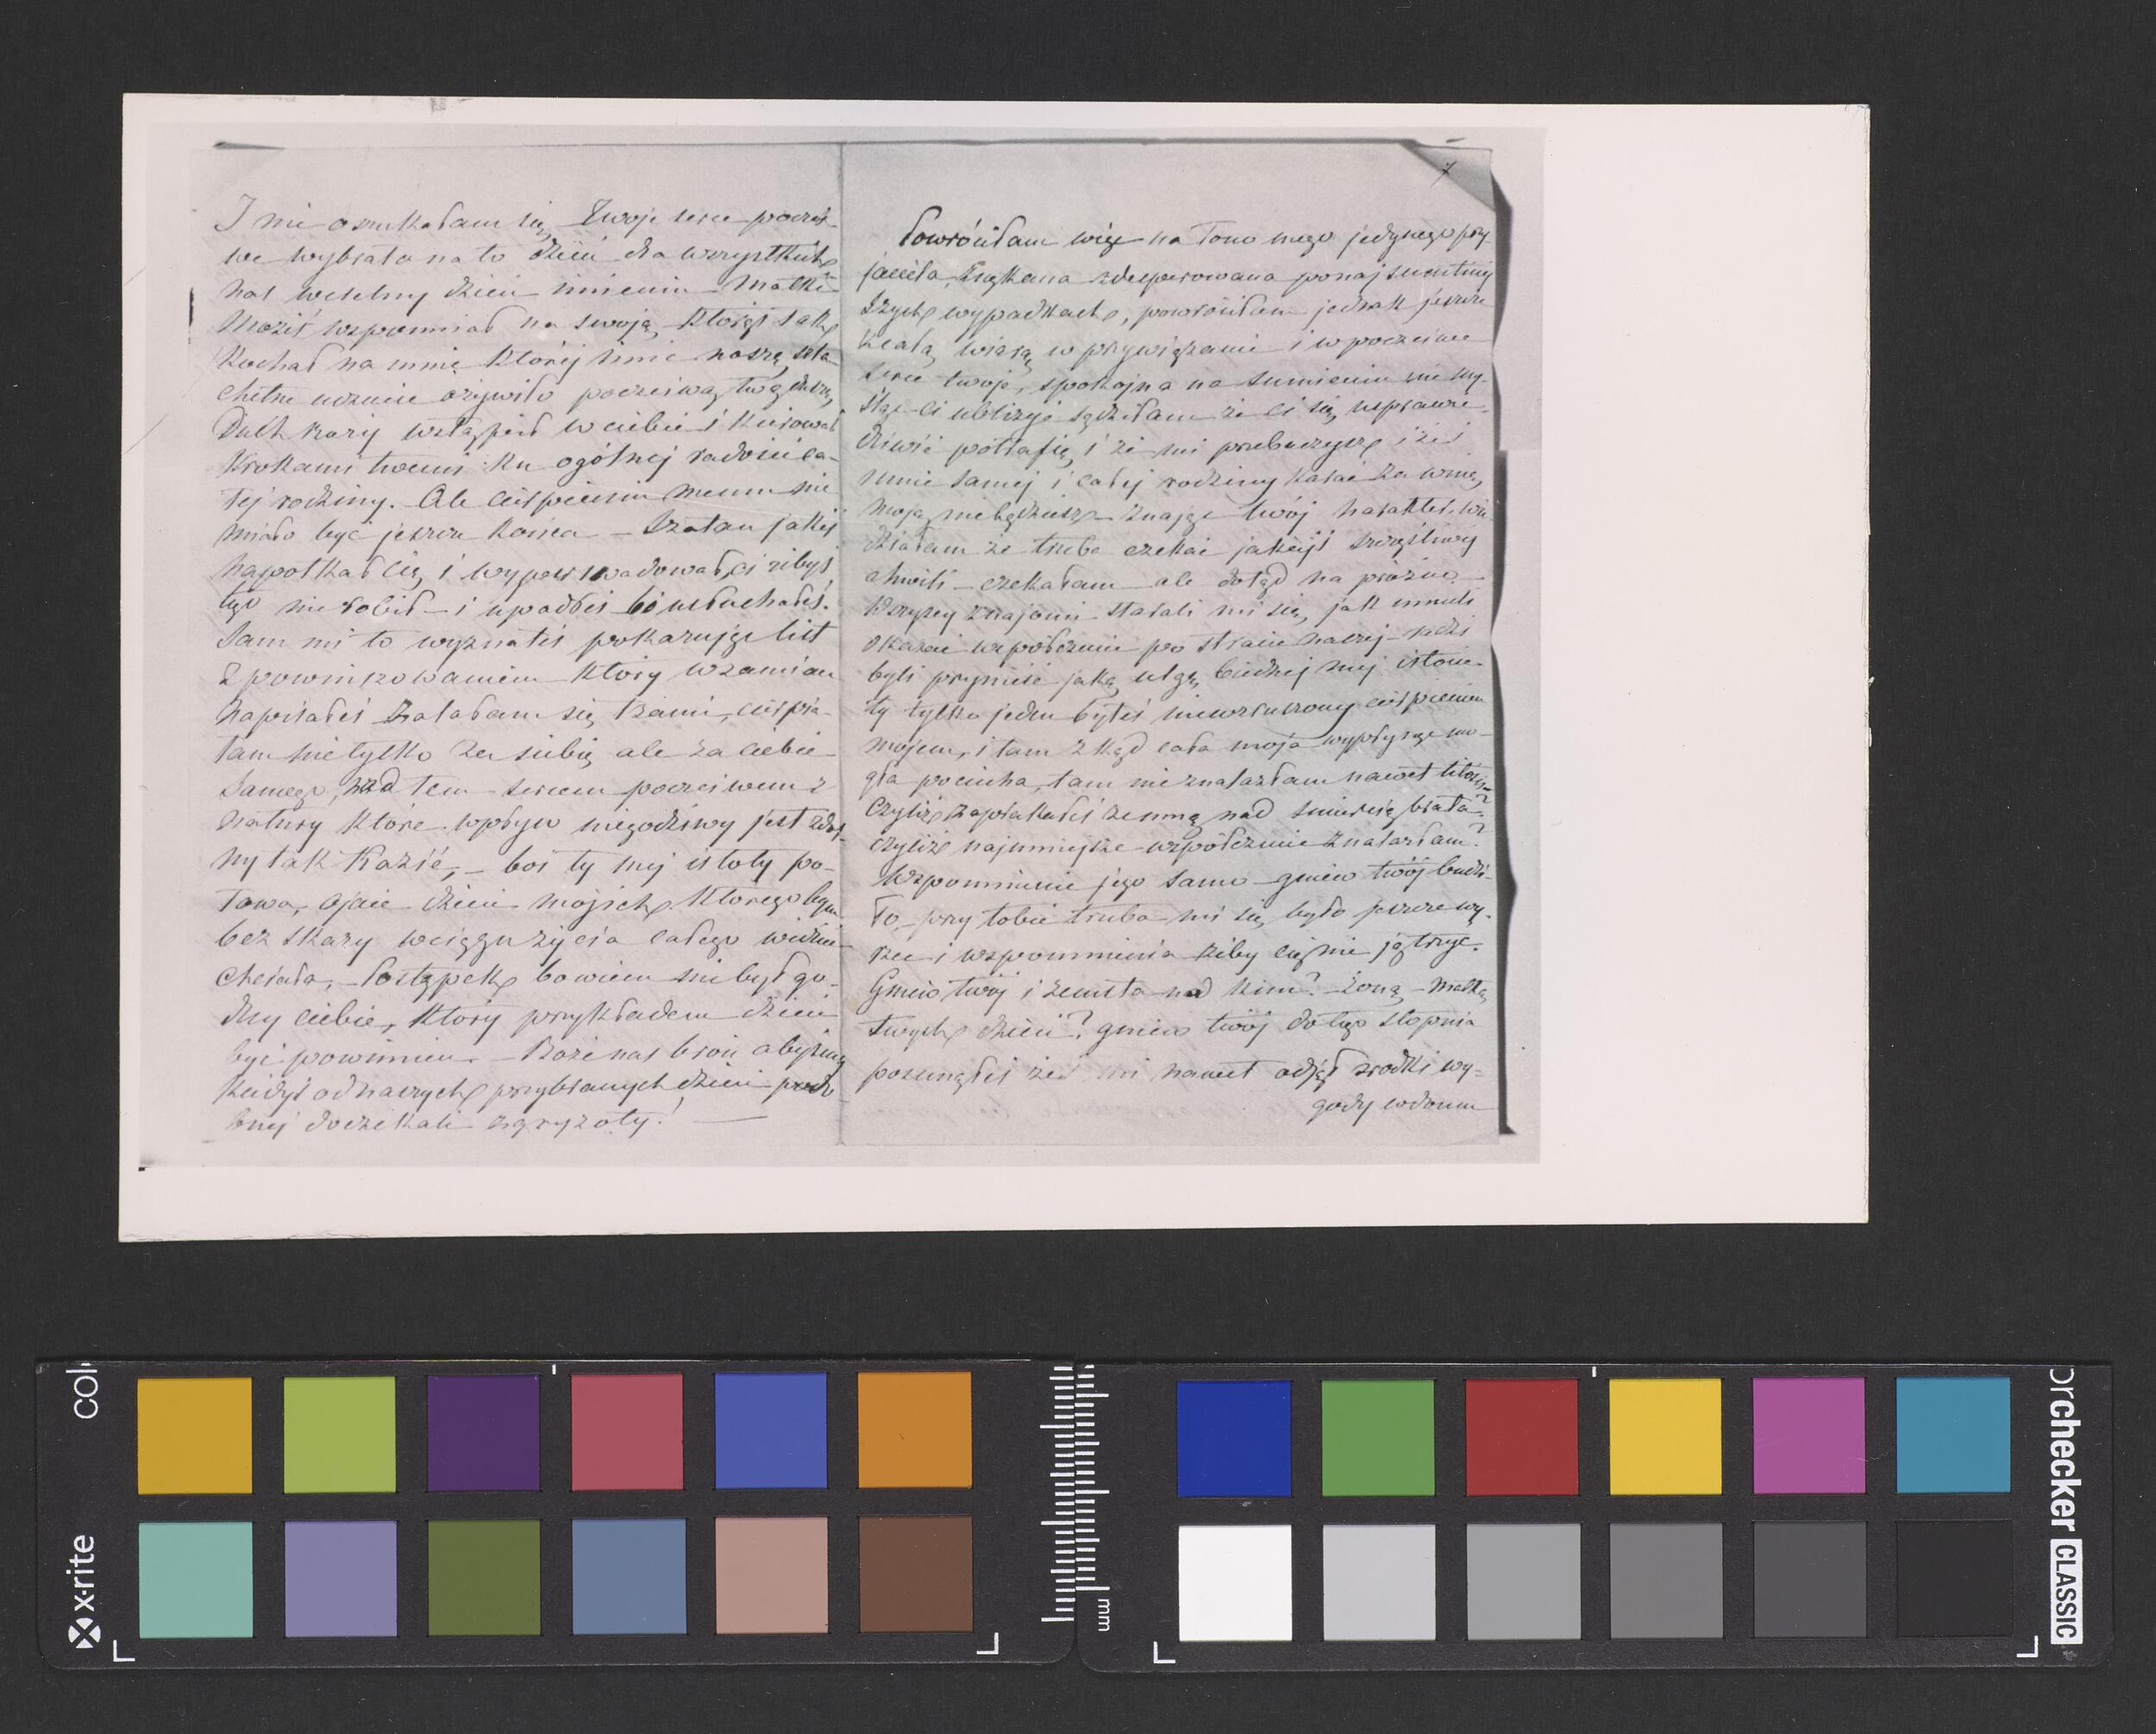 I nie oszukałam się, Twoje serce poczci-
we wybrało na to dzień dla wszystkich
nas weselny dzień imienin Matki
Możeś wspomniał na swoją, którąś tak
kochał na mnie której imie noszę, szla-
chetne uczucie ożywiło poczciwą twą duszę,
Duch Boży wstąpił w ciebie i kierował
krokami twemi ku ogólnej radości ca-
łej rodziny. Ale cierpieniu memu nie
miało być jeszcze końca – Szatan jakiś
napotkał cię, i wyperswadował, ci żebyś
tego nie robił – i upadłeś bo usłuchałeś.
Sam mi to wyznałeś pokazując list
z powinszowaniem który wzamian
napisałeś Zalałam się łzami, cierpia-
łam nie tylko za siebie ale za ciebie
samego, nad tem sercem poczciwem z
natury które wpływ niegodziwy jest zdol-
ny tak kazić, – boś ty mej istoty po-
łowa, ojcie dzieci mojich którego bym
bez skazy wciągu życia całego widzieć
chciała, – Postępek bowiem niebył go-
dny ciebie, który przykładem dzieci
być powinien. – Boże nas broń abyśmy
kiedyś od naszych przybranych dzieci podo-
bnej doczekali zgryzoty! —
7
Powróciłam więc na łono mego jedynego przy-
jaciela, znękana zdesperowana po najsmutniej
szych wypadkach, powróciłam jednak jeszcze
z całą wiarą w przywiązanie i w poczciwe
serce twoje, spokojna na sumieniu nie my-
śląc ci ubliżyć sądziłam że ci się, usprawie-
dliwić potrafię, i że mi przebaczysz i żeś
mnie samej i całej rodziny karać za winę,
moją niebędziesz znając twój harakter, wie-
działam że trzeba czekać jakiejś szczęśliwej
chwili – czekałam – ale dotąd na próżno –
Wszyscy znajomi starali mi się, jak umieli
okazać współczucie po stracie naszej – radzi
byli przynieść jaką ulgę, biednej mej istocie
ty tylko jeden byłeś niewzruszony cierpieniem
mojem, i tam zkąd cała moja wypłynąć mo-
gła pociecha, tam nie znalazłam nawet litości –
Czyliż zapłakałeś zemną nad śmiercią brata?
czyliż najmniejsze współczucie znalazłam?
Wspomnienie jego samo gniew twój budzi-
ło, – przy tobie trzeba mi się, było jeszcze wy-
rzec i wspomnienia żeby cię nie jątrzyć.
Gniew twój i zemsta nad kim? żoną – Matką
twych dzieci? gniew twój do tego stopnia
posunąłeś żeś mi nawet odjął środki wy-
gody w domu
x-rite
mm
CLASSIC